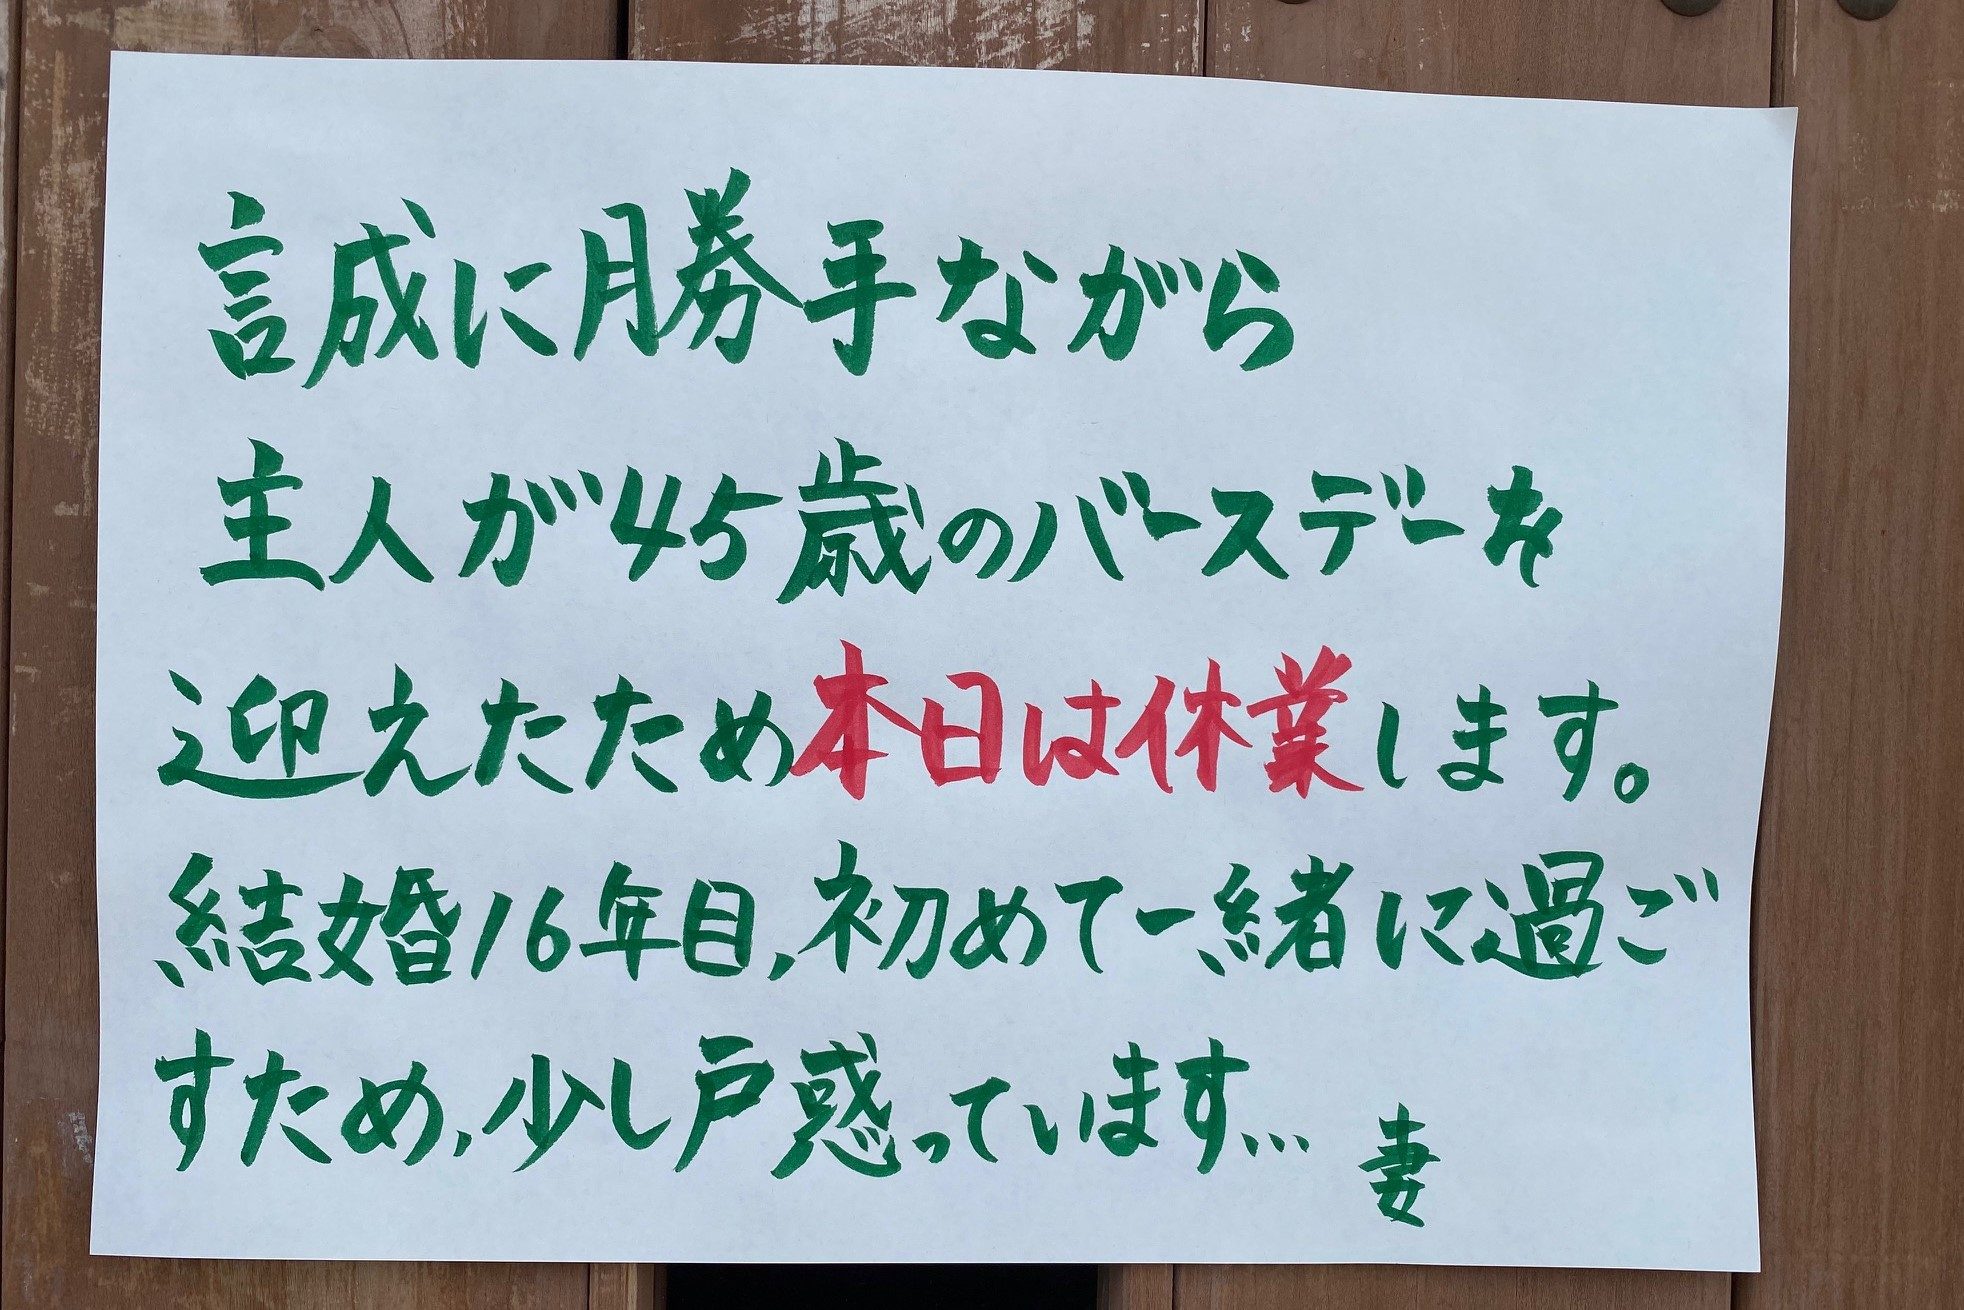 誠に勝手ながら
主人が45歳のバースデーを
迎えたため本日は休業します。
結婚16年目,初めて一緒に過ご
すため,少し戸惑っています...
妻